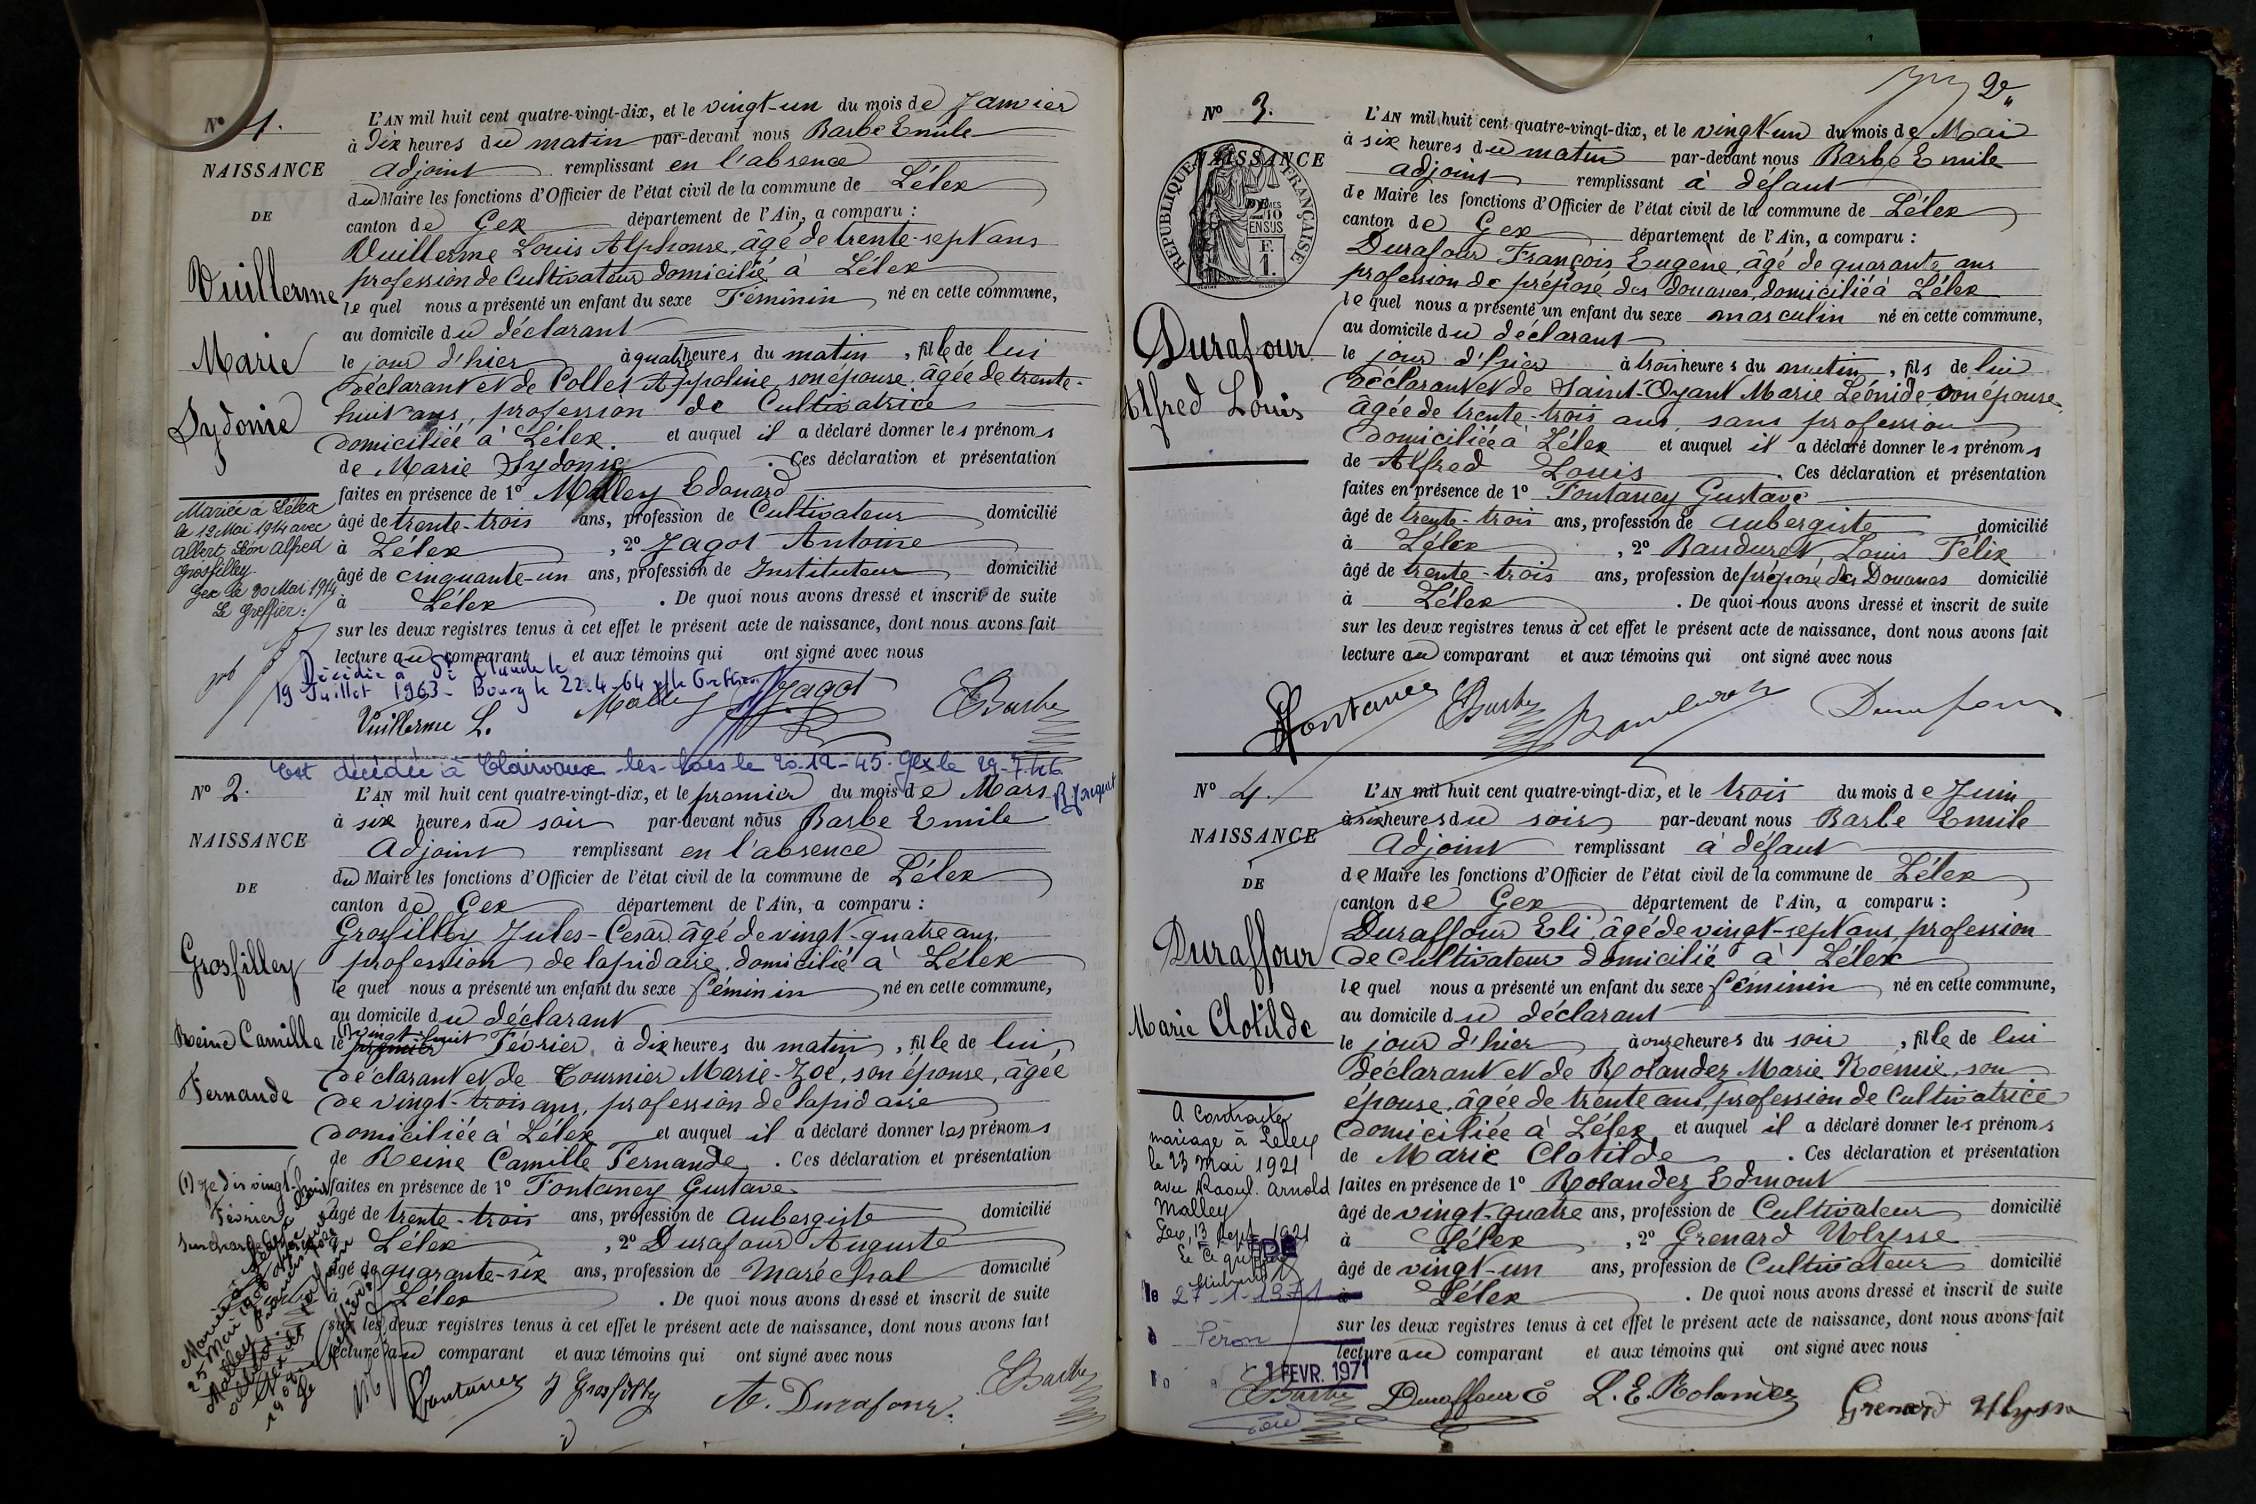 Nº 1.
NAISSANCE
DE
Vuillerme
Marie
Sydonie
L'AN mil huit cent quatre-vingt-dix, et le vingt-un du mois de Janvier
à dix heures du matin par-devant nous Barbe Emile
adjoint remplissant en l'absence
du Maire les fonctions d'Officier de l'état civil de la commune de Lélex
canton de Gex département de l'Ain, a comparu :
Vuillerme Louis Alphonse, âgé de trente-sept ans
profession de Cultivateur domicilié à Lélex
le quel nous a présenté un enfant du sexe Féminin né en cette commune,
au domicile du déclarant
le jour d'hier à quatre heures du matin, fille de lui
déclarant et de Collet Appoline, son épouse, âgée de trente-
huit ans, profession de Cultivatrice
domiciliée à Lélex. et auquel il a déclaré donner les prénoms
de Marie Sydonie. Ces déclaration et présentation
faites en présence de 1º Malley Edouard
âgé de trente-trois ans, profession de Cultivateur domicilié
à Lélex, 2º Jagot Antoine
âgé de cinquante-un ans, profession de Instituteur domicilié
à Lélex. De quoi nous avons dressé et inscrit de suite
sur les deux registres tenus à cet effet le présent acte de naissance, dont nous avons fait
lecture au comparant et aux témoins qui ont signé avec nous
Mariée à Lélex
le 12 Mai 1914 avec
Albert Léon Alfred
Grosfilley
Gex le 20 Mai 1914
Le Greffier:
Décédée à St Claude le
19 Juillet 1963 - Bourg le 22.4.64
Vuillerme L. Malley Jagot Barbe
Est décédée à Clairvaux-les-Lacs le 20-12-45. Gex le
Nº 2.
NAISSANCE
DE
Grosfilley
Reine Camille
Fernande
L'AN mil huit cent quatre-vingt-dix, et le premier du mois de Mars
à six heures du soir par-devant nous Barbe Emile
Adjoint remplissant en l'absence
du Maire les fonctions d'Officier de l'état civil de la commune de Lélex
canton de Gex département de l'Ain, a comparu :
Grosfilley Jules-Cesar âgé de vingt-quatre ans,
profession de lapidaire, domicilié à Lélex
le quel nous a présenté un enfant du sexe féminin né en cette commune,
au domicile du déclarant
(1) vingt-huit
le premier Février, à dix heures du matin, fille de lui,
déclarant et de Tournier Marie-Zoé, son épouse, âgée
de vingt-trois ans, profession de lapidaire
domiciliée à Lélex et auquel il a déclaré donner les prénoms
de Reine Camille Fernande. Ces déclaration et présentation
faites en présence de 1º Fontaney Gustave
âgé de trente-trois ans, profession de Aubergiste domicilié
à Lélex, 2º Durafour Auguste
âgé de quarante-six ans, profession de Maréchal domicilié
à Lélex. De quoi nous avons dressé et inscrit de suite
sur les deux registres tenus à cet effet le présent acte de naissance, dont nous avons fait
lecture au comparant et aux témoins qui ont signé avec nous
(1) Je dis vingt-huit
Février
Mariée à
25 Mai
Malley
Fontaney J Grosfilley A. Durafour. Barbe
2
Nº 3.
NAISSANCE
DE
RÉPUBLIQUE FRANÇAISE
F.
1.
Durafour
Alfred Louis
L'AN mil huit cent quatre-vingt-dix, et le vingt-un du mois de Mai
à six heures du matin par-devant nous Barbe Emile
adjoint remplissant à défaut
de Maire les fonctions d'Officier de l'état civil de la commune de Lélex
canton de Gex département de l'Ain, a comparu :
Durafour François Eugène, âgé de quarante ans
profession de préposé des douanes, domicilié à Lélex
le quel nous a présenté un enfant du sexe masculin né en cette commune,
au domicile du déclarant
le jour d'hier à trois heures du matin, fils de lui
déclarant et de Saint-Oyant Marie Léonide, son épouse,
âgée de trente-trois ans, sans profession
domiciliée à Lélex et auquel il a déclaré donner les prénoms
de Alfred Louis. Ces déclaration et présentation
faites en présence de 1º Fontaney Gustave
âgé de trente-trois ans, profession de Aubergiste domicilié
à Lélex, 2º Banduret, Louis Félix
âgé de trente-trois ans, profession de préposé des Douanes domicilié
à Lélex. De quoi nous avons dressé et inscrit de suite
sur les deux registres tenus à cet effet le présent acte de naissance, dont nous avons fait
lecture au comparant et aux témoins qui ont signé avec nous
Fontaney Barbe Durafour
Nº 4.
NAISSANCE
DE
Duraffour
Marie Clotilde
L'AN mil huit cent quatre-vingt-dix, et le trois du mois de Juin
à six heures du soir par-devant nous Barbe Emile
Adjoint remplissant à défaut
de Maire les fonctions d'Officier de l'état civil de la commune de Lélex
canton de Gex département de l'Ain, a comparu :
Duraffour Eli, âgé de vingt-sept ans, profession
de Cultivateur domicilié à Lélex
le quel nous a présenté un enfant du sexe féminin né en cette commune,
au domicile du déclarant
le jour d'hier à onze heures du soir, fille de lui
déclarant et de Rolandez Marie Noémie, son
épouse, âgée de trente ans, profession de Cultivatrice
domiciliée à Lélex et auquel il a déclaré donner les prénoms
de Marie Clotilde. Ces déclaration et présentation
faites en présence de 1º Rolandez Edmont
âgé de vingt-quatre ans, profession de Cultivateur domicilié
à Lélex, 2º Grenard Ulysse
âgé de vingt-un ans, profession de Cultivateur domicilié
à Lélex. De quoi nous avons dressé et inscrit de suite
sur les deux registres tenus à cet effet le présent acte de naissance, dont nous avons fait
lecture au comparant et aux témoins qui ont signé avec nous
A contracté
mariage à Lélex
le 23 Mai 1921
avec Raoul. Arnold
Malley
Gex, 13 Sept 1921
le 27-1-1971
à Péron
1 FEVR. 1971
Barbe Duraffour E L. E. Rolandez Grenard Ulysse